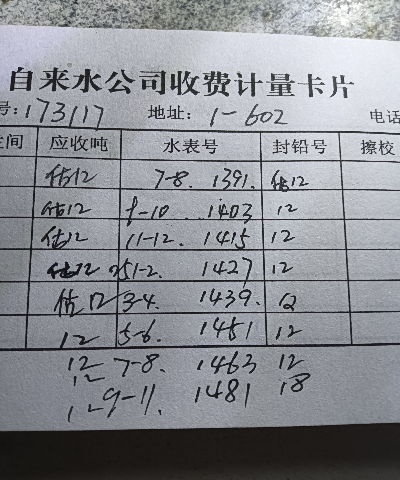 自来水公司收费计量卡片
号: 173117 地址: 1-602 电话
时间 应收吨 水表号 封铅号 擦校
估12 7-8. 1391. 估12
估12 9-10 1403 12
估12 11-12. 1415 12
估12 251-2. 1427 12
估12 3-4. 1439. 12
12 5-6. 1451 12
12 7-8. 1463 12
12 9-11. 1481 18